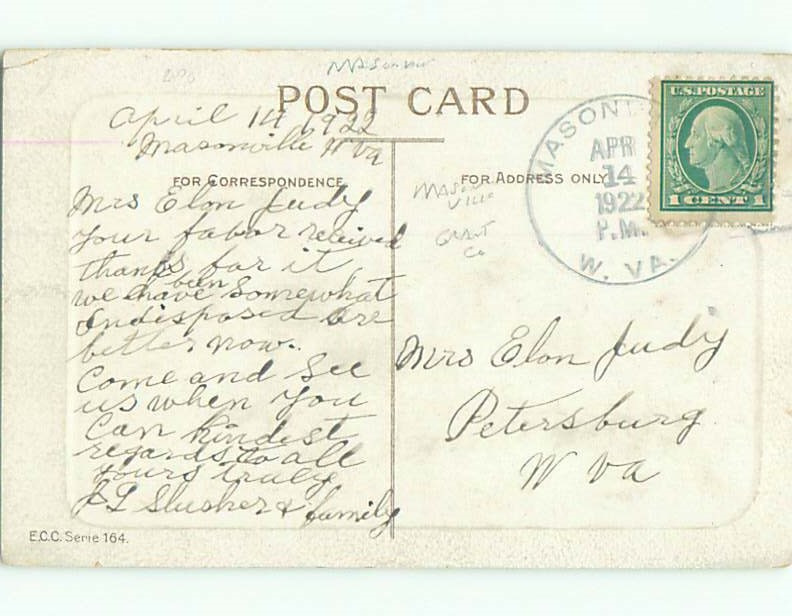 Masonville
POST CARD
April 14 1922
Masonville W Va
FOR CORRESPONDENCE
Mrs Elon Judy
your favor received
thanks for it
we have been somewhat
Indisposed are
better now.
Come and See
us when you
Can Kindest
regards to all
yours truly
J L Slusher & family
E.C.C. Serie 164.
FOR ADDRESS ONLY
MASON
VILLE
GRANT
Co
MASON
APR
14
1922
P.M.
W. VA.
U.S. POSTAGE
1 CENT 1
Mrs Elon Judy
Petersburg
W Va